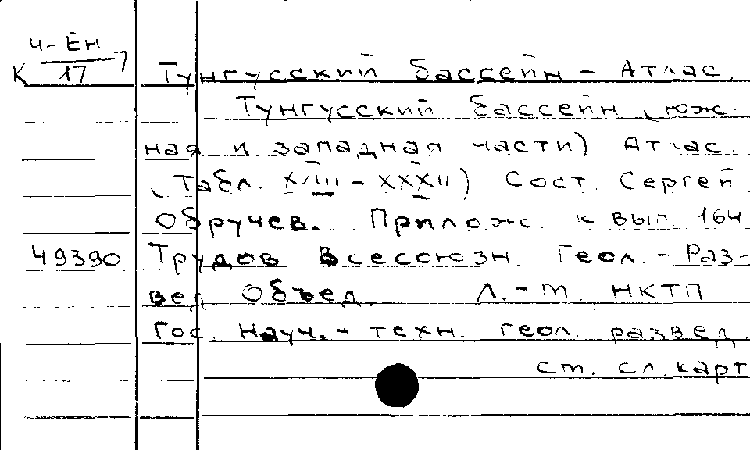 Ч-ЕН
К 17 Тунгусский бассейн - Атлас.
Тунгусский бассейн (юж-
ная и западная части) Атлас.
(Табл. XVIII - XXXII) Сост. Сергей
Обручев. Прилож. к вып. 164
49390 Трудов Всесоюзн. Геол. - Раз-
вед. Объед. Л.-М. НКТП
Гос. Науч.- техн. геол. развед.
см. сл. карт